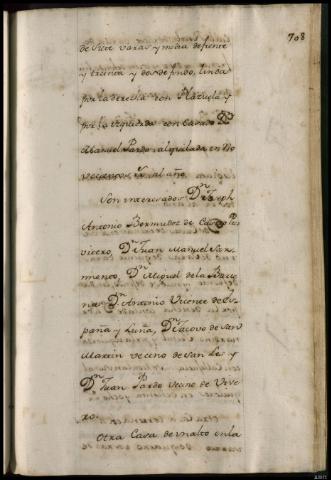 708
de siete varas y media de frente
y treinta y dos de fondo, linda
por la derecha con Plazuela y
por la izquierda con Casa de
Manuel Pardo, alquilada en No
vecientos rs. al año.
Son interesados Dn. Joseph
Antonio Bermudez de Castro Pres
vitero, Dn. Juan Manuel Sar
miento, Dn. Miguel de la Barce
na, Dn. Antonio Vicente de Es
paña y Luna, Dn. Jacovo de San
Martin vecino de San y
Dn. Juan Pardo vecino de Vive
ro.
Otra Casa de un alto en la